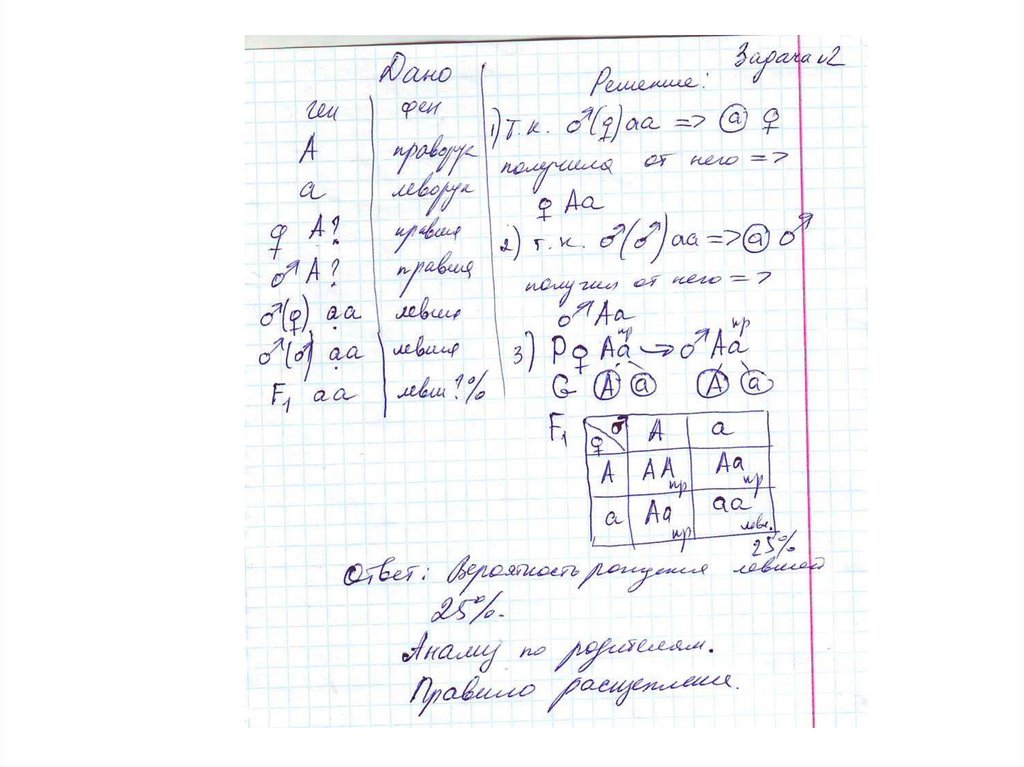 Задача №2
Дано
ген фен
А праворук
а леворук
♀ А? правша
♂ А? правша
♂(♀) аа левша
♂(♂) аа левша
F₁ аа левш ?%
Решение:
1) т.к. ♂(♀) аа => а ♀
получила от него =>
♀ Аа
2) т.к. ♂(♂) аа => а ♂
получил от него =>
♂ Аа
3) Р ♀ Аа пр → ♂ Аа пр
G А а А а
F₁ ♀ ♂ А а
А АА пр Аа пр
а Аа пр аа левш.
25%
Ответ: Вероятность рождения левшой
25%.
Анализ по родителям.
Правило расщепления.